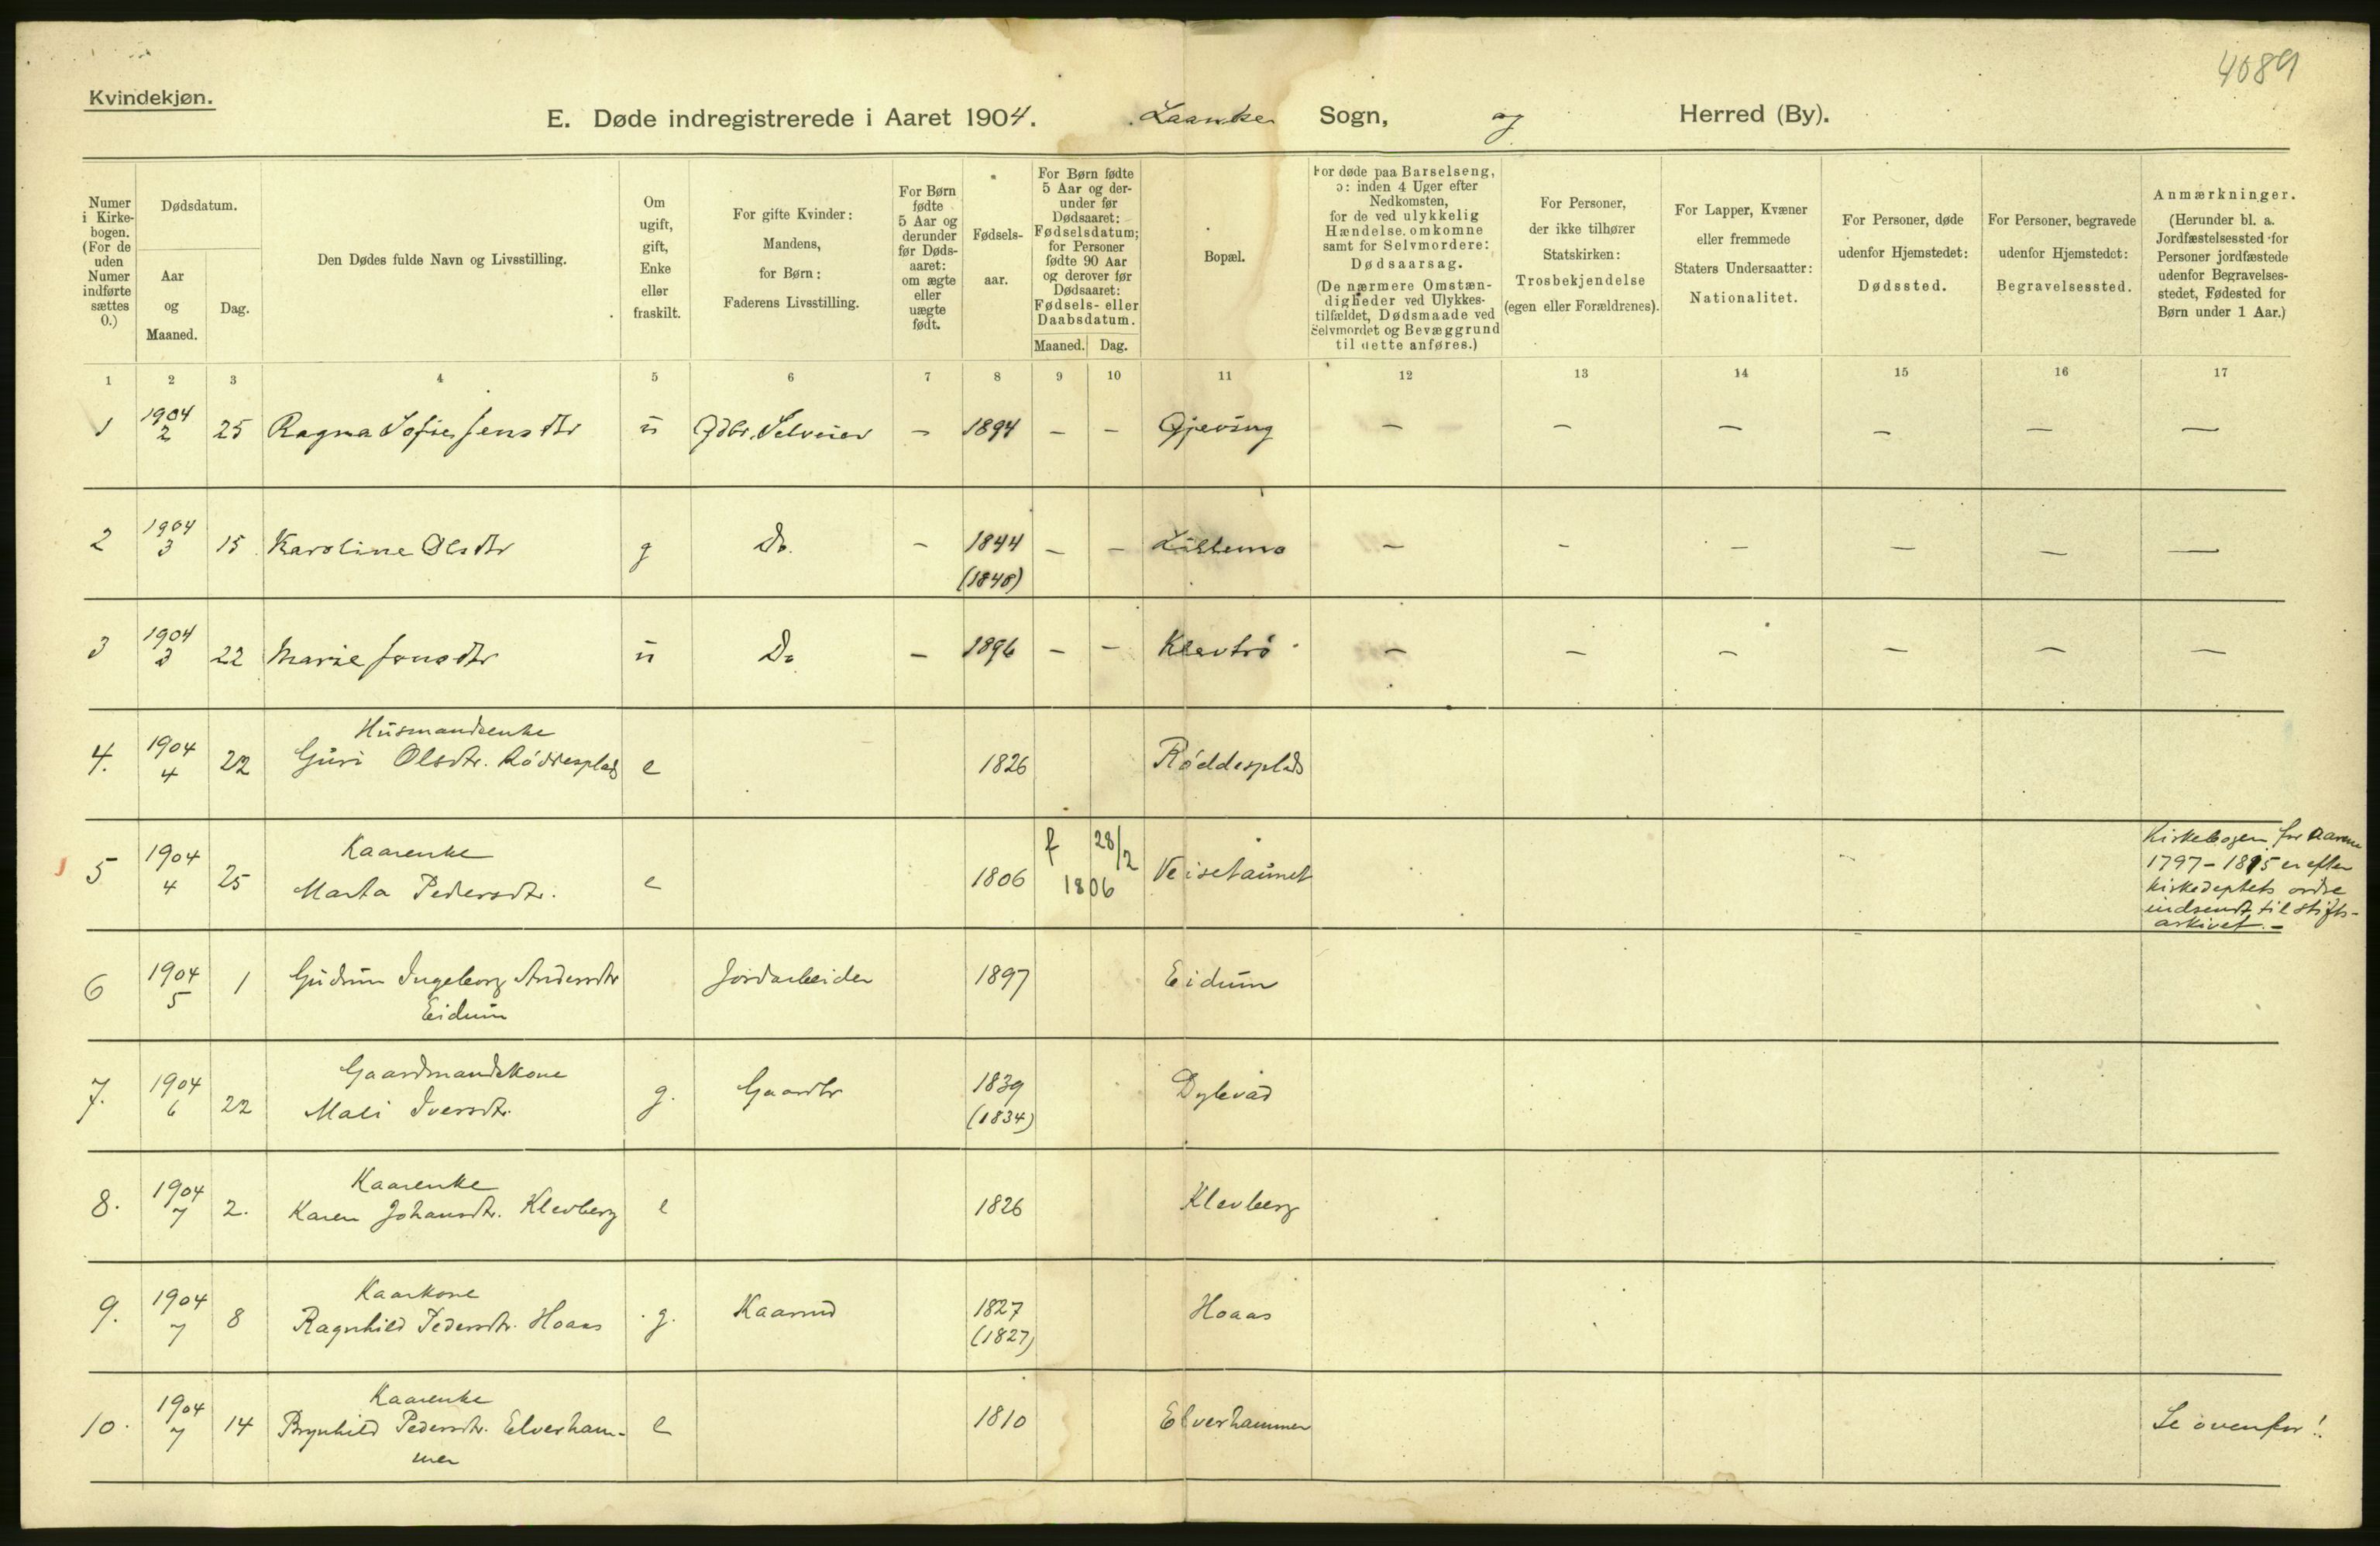 4089
Kvindekjøn.
E. Døde indregistrerede i Aaret 1904. Laanke Sogn, og Herred (By).
Numer i Kirkebogen. (For de uden Numer indførte sættes 0.)
Dødsdatum.
Aar og Maaned.
Dag.
Den Dødes fulde Navn og Livsstilling.
Om ugift, gift, Enke eller fraskilt.
For gifte Kvinder: Mandens, for Børn: Faderens Livsstilling.
For Børn fødte 5 Aar og derunder før Dødsaaret: om ægte eller uægte født.
Fødselsaar.
For Børn fødte 5 Aar og derunder før Dødsaaret: Fødselsdatum; for Personer fødte 90 Aar og derover før Dødsaaret: Fødsels- eller Daabsdatum.
Maaned. Dag.
Bopæl.
For døde paa Barselseng, ɔ: inden 4 Uger efter Nedkomsten, for de ved ulykkelig Hændelse omkomne samt for Selvmordere: Dødsaarsag.
(De nærmere Omstændigheder ved Ulykkestilfældet, Dødsmaade ved Selvmordet og Bevæggrund til dette anføres.)
For Personer, der ikke tilhører Statskirken: Trosbekjendelse (egen eller Forældrenes).
For Lapper, Kvæner eller fremmede Staters Undersaatter: Nationalitet.
For Personer, døde udenfor Hjemstedet: Dødssted.
For Personer, begravede udenfor Hjemstedet: Begravelsessted.
Anmærkninger. (Herunder bl. a. Jordfæstelsessted for Personer jordfæstede udenfor Begravelsesstedet, Fødested for Børn under 1 Aar.)
1 2 3 4 5 6 7 8 9 10 11 12 13 14 15 16 17
1 1904 2 25 Ragna Sofie Jensdtr u Gdbr. Selveier – 1894 – – Gjeving – – – – – –
2 1904 3 15 Karoline Olsdtr g Do. – 1844 – – Lillemo – – – – – –
(1840)
3 1904 3 22 Marie Jonsdtr u Do – 1896 – – Klevtrø – – – – – –
Husmandsenke
4. 1904 4 22 Guri Olsdtr. Røddesplads e 1826 Røddesplads
Kaarenke
5 1904 4 25 Marta Pedersdtr. e 1806 f 28/2 1806 Veisetaunet
Kirkebogen for Aarene
1797–1815 er efter
kirkedeptets ordre
indsendt til stifts-
arkivet. –
6 1904 5 1 Gudrun Ingeborg Andersdtr Jordarbeider 1897 Eidum
Eidum
Gaardmandskone
7. 1904 6 22 Mali Iversdtr. g. Gaardbr 1839 Dylevad
(1834)
Kaarenke
8. 1904 7 2. Karen Johansdtr. Klevberg e 1826 Klevberg
Kaarkone
9. 1904 7 8 Ragnhild Pedersdtr. Hoaas g. Kaarmd 1827 Hoaas
(1827)
Kaarenke
10. 1904 7 14 Brynhild Pedersdtr. Elverham- e 1810 Elverhammer Se ovenfor!
mer